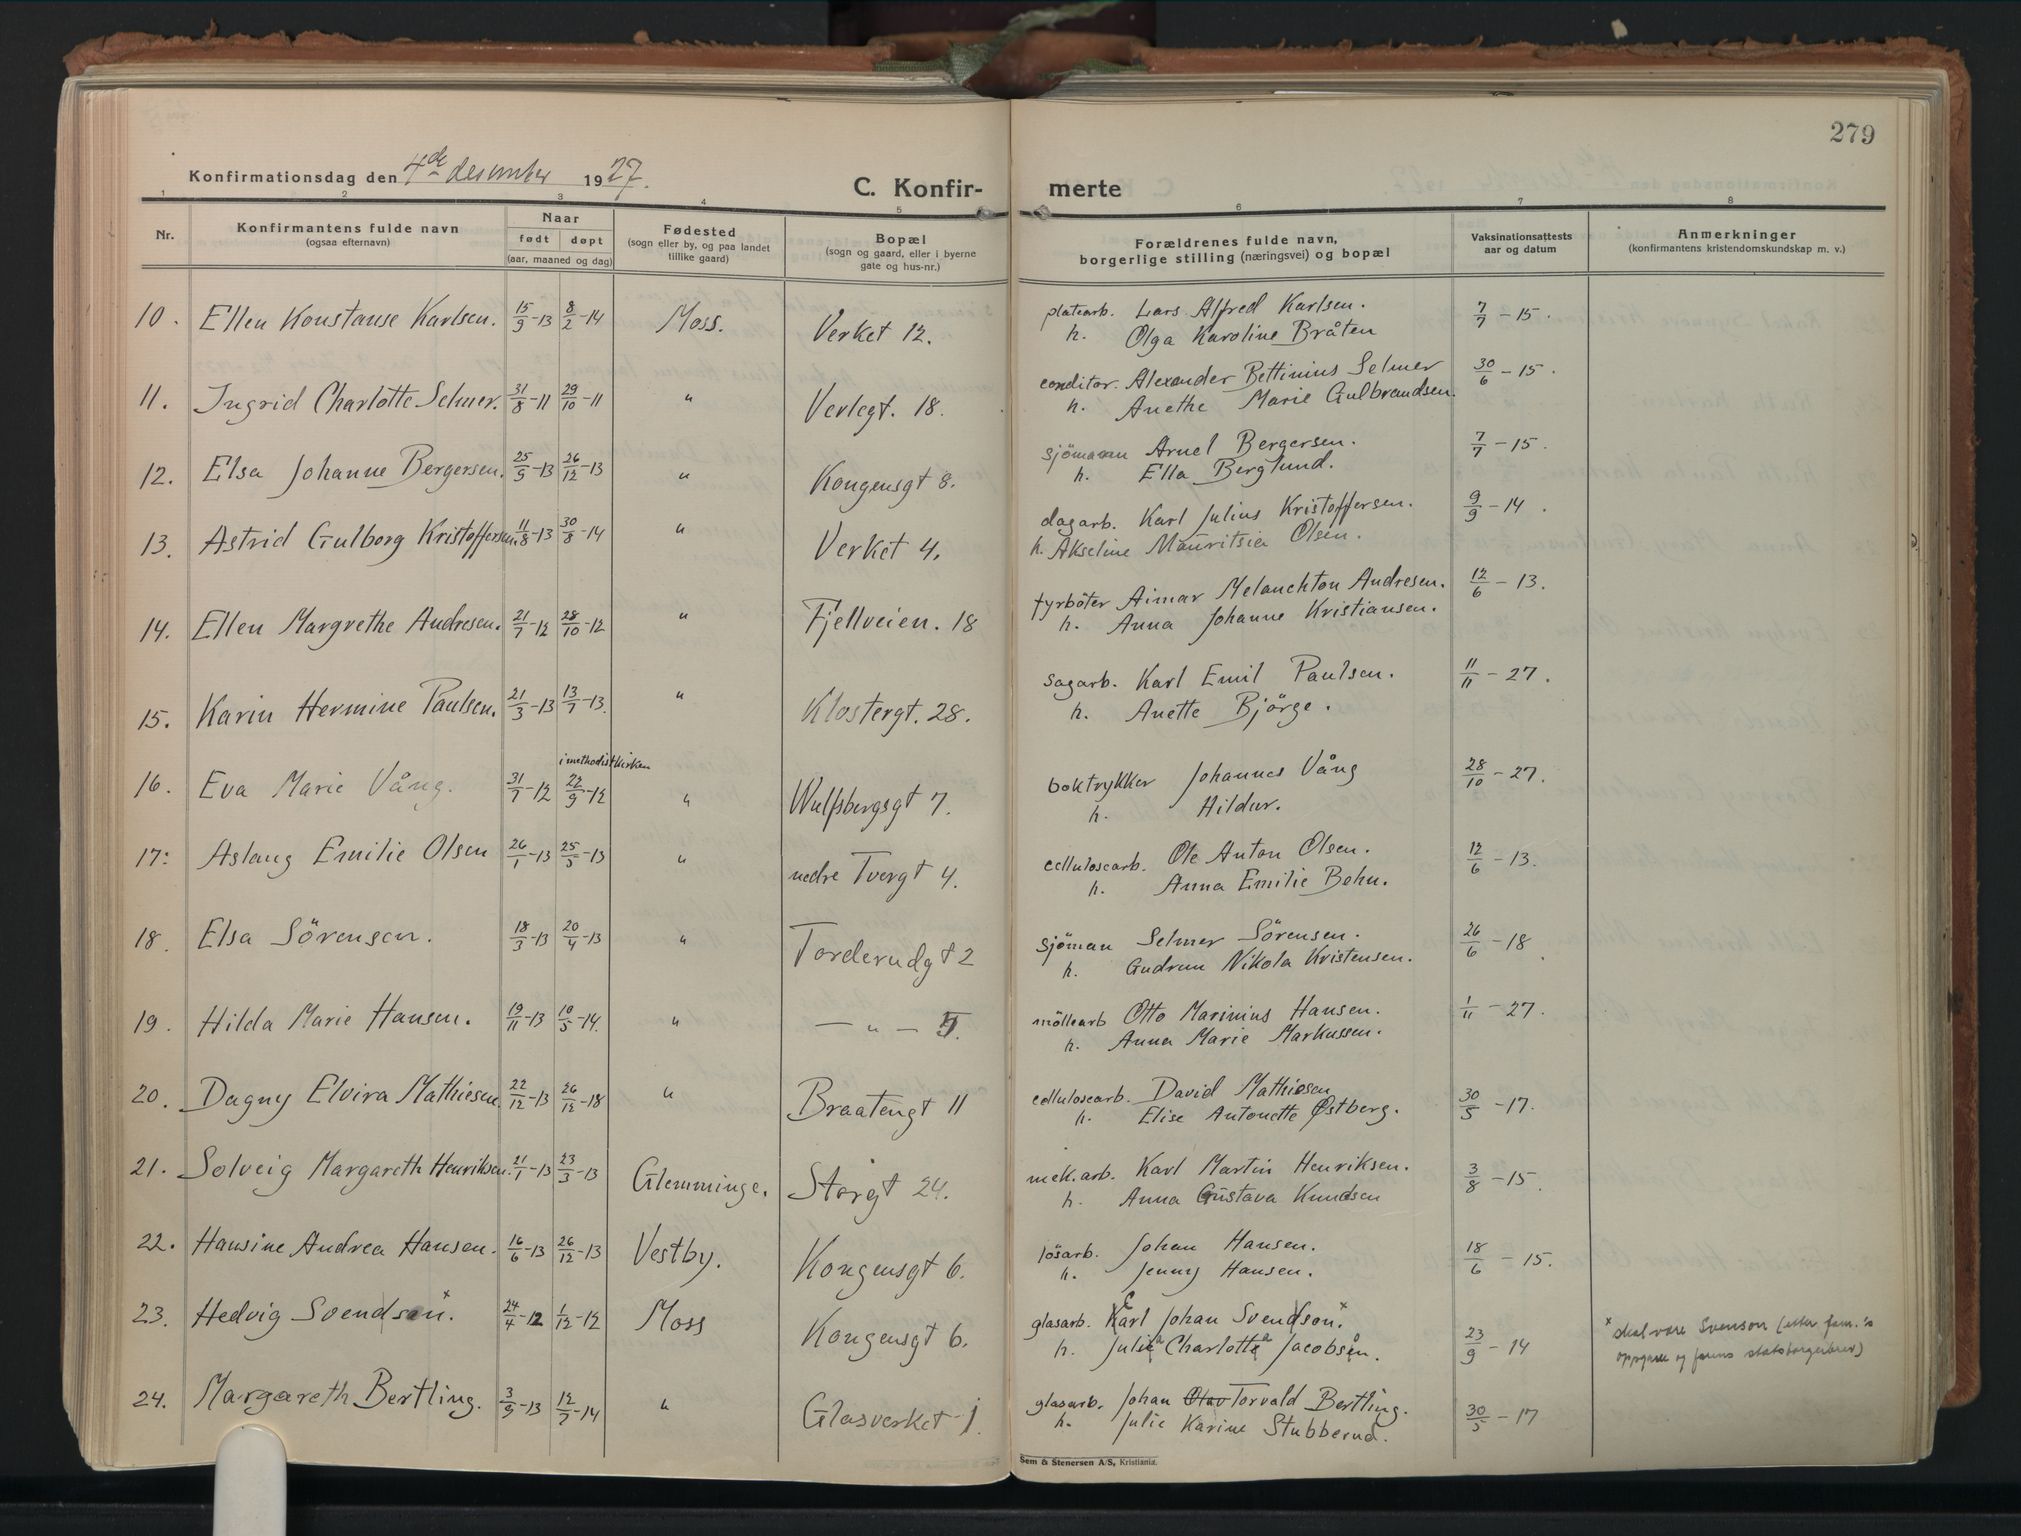 279
Konfirmationsdag den 4de desember 1927.
C. Konfir- merte
1 2 3 4 5 6 7 8
Nr.
Konfirmantens fulde navn
(ogsaa efternavn)
Naar
født døpt
(aar, maaned og dag)
Fødested
(sogn eller by, og paa landet
tillike gaard)
Bopæl
(sogn og gaard, eller i byerne
gate og hus-nr.)
Forældrenes fulde navn,
borgerlige stilling (næringsvei) og bopæl
Vaksinationsattests
aar og datum
Anmerkninger
(konfirmantens kristendomskundskap m. v.)
10. Ellen Konstanse Karlsen. 15/9-13 8/2-14 Moss. Verket 12. platearb. Lars Alfred Karlsen. 7/7-15.
h. Olga Karoline Bråten
11. Ingrid Charlotte Selmer. 31/8-11 29/10-11 " Verlegt. 18. conditor. Alexander Bettinius Selmer 30/6-15.
h. Anethe Marie Gulbrandsen.
12. Elsa Johanne Bergersen. 25/9-13 26/12-13 " Kongensgt 8. sjömann Arnel Bergersen. 7/7-15.
h. Ella Berglund.
13. Astrid Gulborg Kristoffersen. 11/8-13 30/8-14 " Verket 4. dagarb. Karl Julius Kristoffersen. 9/9-14.
h. Akseline Mauritsia Olsen.
14. Ellen Margrethe Andresen. 21/7-12 28/10-12 " Fjellveien. 18 fyrböter Aimar Melanchton Andresen. 12/6-13.
h. Anna Johanne Kristiansen.
15. Karin Hermine Paulsen. 21/3-13 13/7-13. " Klostergt. 28. sagarb. Karl Emil Paulsen. 11/11-27.
h. Anette Bjørge.
i methodistkirken
16. Eva Marie Vång. 31/7-12 22/9-12 " Wulfsbergsgt 7. boktrykker Johannes Vång 28/10-27.
h. Hildur.
17. Aslaug Emilie Olsen 26/1-13 25/5-13 " nedre Tvergt 4. cellulosearb. Ole Anton Olsen. 12/6-13.
h. Anna Emilie Behn.
18. Elsa Sörensen. 18/3-13 20/4-13 " Torderudgt 2 sjöman Selmer Sörensen. 26/6-18.
h. Gudrun Nikola Kristensen.
19. Hilda Marie Hansen. 19/11-13 10/5-14. " — " — 5. möllearb Otto Marinius Hansen. 1/11-27.
h. Anna Marie Markussen.
20. Dagny Elvira Mathiesen. 22/12-13 26/12-18 " Braatengt 11 cellulosearb. David Mathiesen 30/5-17.
h. Elise Antonette Østberg.
21. Solveig Margareth Henriksen. 21/1-13 23/3-13 Glemminge. Storgt 24. mek.arb. Karl Martin Henriksen. 3/8-15.
h. Anna Gustava Knudsen
22. Hansine Andrea Hansen. 16/6-13 26/12-13 Vestby. Kongensgt 6. lösarb. Johan Hansen. 18/6-15.
h. Jenny Hansen.
23. Hedvig Svendson x. 24/4-12 1/12-12 Moss Kongensgt 6. glasarb. Carl Johan Svendson. x 23/9-14 x skal være Svenson (efter fam.'s
h. Julia Charlotta Jacobsån. oppgave og farens statsborgerbrev)
24. Margareth Bertling. 3/9-13 12/7-14 " Glasverket 1. glasarb. Johan Olav Torvald Bertling. 30/5-17
h. Julie Karine Stubberud.
Sem & Stenersen A/S, Kristiania.